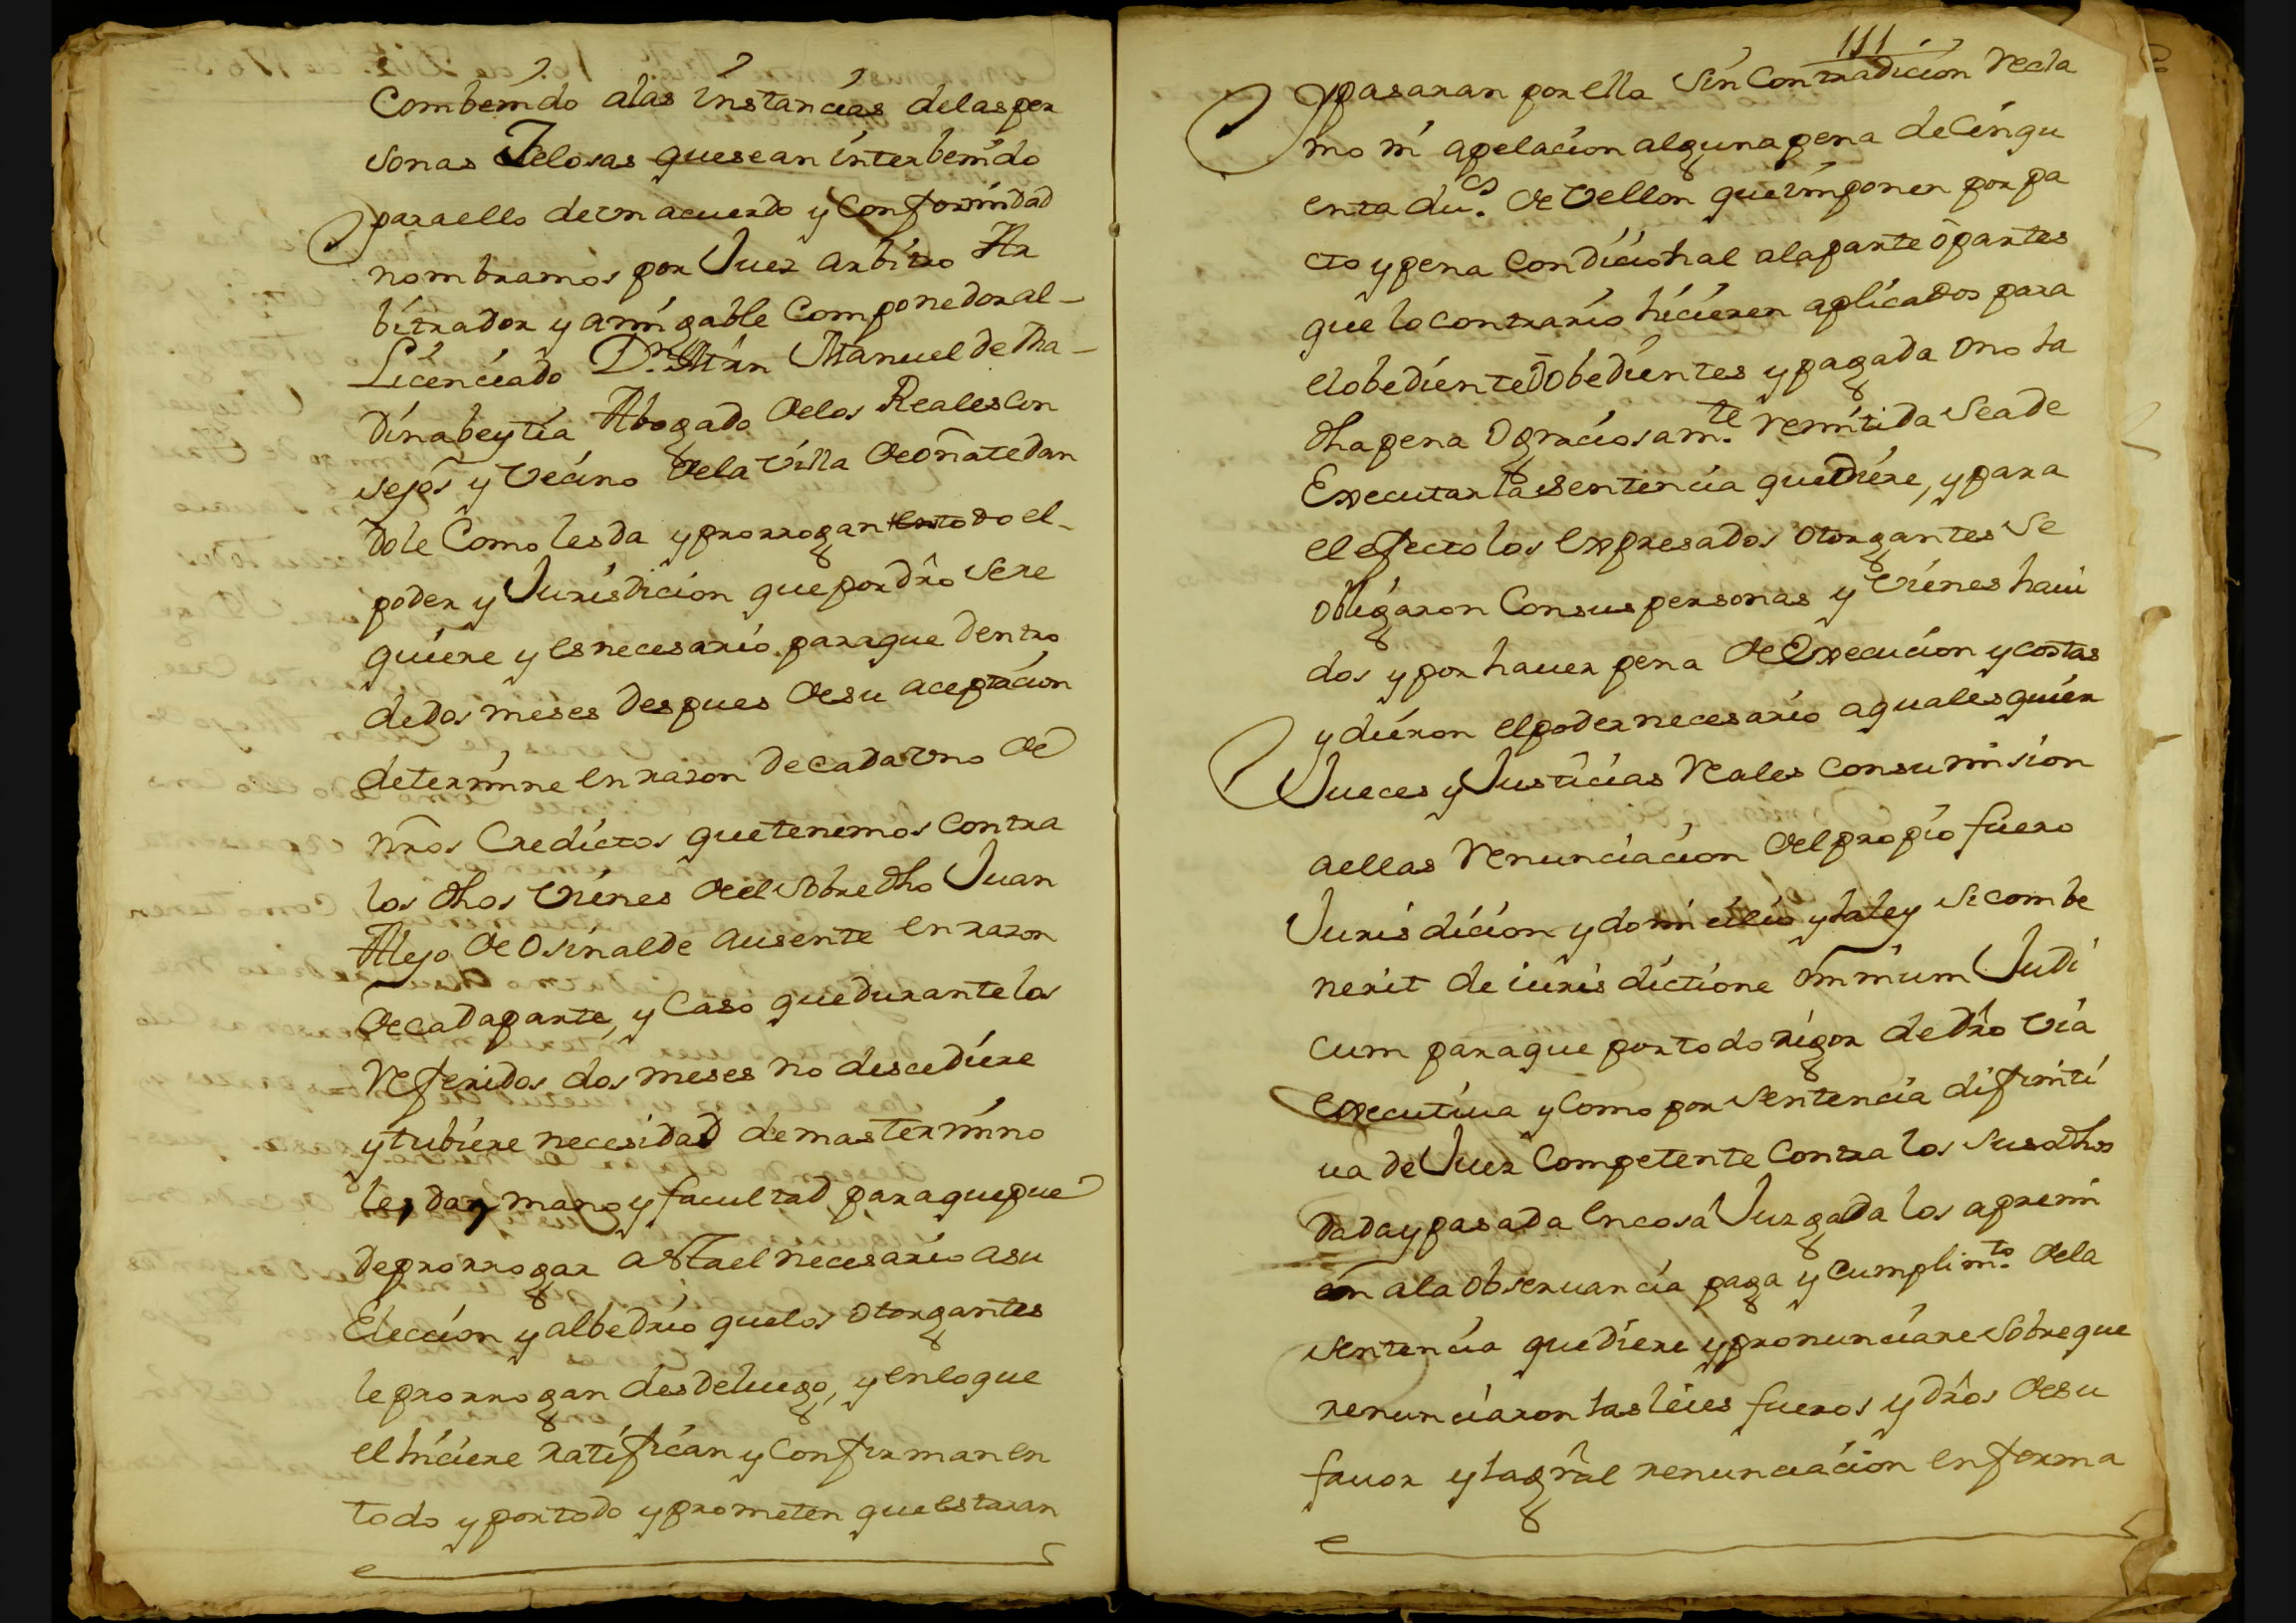 Combenido alas instancias delasper
sonas Zelosas quesean interbenido
paraello deunacuerdo y Conformidad
nombramos por Juez arbitro Ar
bitrador y amigable Componedoral-
Licenciado Dn. Mrn Manuel de Ma-
dinabeytia Abogado delos Reales Con
sejos y Vecino dela Villa de oñatedan
dole Como lesda y prorrogan entodo el-
poder y Jurisdicion que por dro sere
quiere y esnecesario paraque dentro
dedos meses despues desu aceptacion
determine en razon decada vno de
nros Credictos quetenemos Contra
los dhos vienes deel sobre dho Juan
Alejo de osinalde ausente en razon
decadaparte, y Caso quedurantelos
Referidos dos meses no descediere
y tubiere necesidad demastermino
le, dan mano y facultad paraquepue
deprorrogar asta el necesario asu
Eleccion y albedrio quelos otorgantes
leprorrogan desdeluego, y enloque
el hiciere ratifican y Confirman en
todo y portodo y prometen que estaran
111
y pasaran por ella sin Contradicion recla
mo ni apelacion alguna pena decinqu
enta dus. de vellon queimponen por pa
cto y pena Condicional alaparte òpartes
que lo contrario hicieren aplicados para
elobediente òobedientes y pagada ono la
dha pena o graciosamte. remitida seade
Executar la sentencia quediere, y para
el efecto los expresados otorgantes se
obligaron Consuspersonas y vienes haui
dos y por hauer pena de Execucion y costas
y dieron elpodernecesario aqualesquier
Jueces y Justicias Reales Consumision
aellas Renunciacion del propio fuero
Jurisdicion y domicilio y laley si combe
nerit de iurisdictione omnium Judi
cum paraque portodo rigor de dro via
executiua y Como por sentencia difiniti
ua de Juez Competente Contra los susodhos
dada y pasada en cosa Juzgada los apremi
en ala obseruancia paga y Cumplimto. dela
sentencia quediere y pronunciare sobreque
renunciaron las leies fueros y dros desu
fauor y lagral renunciacion enforma